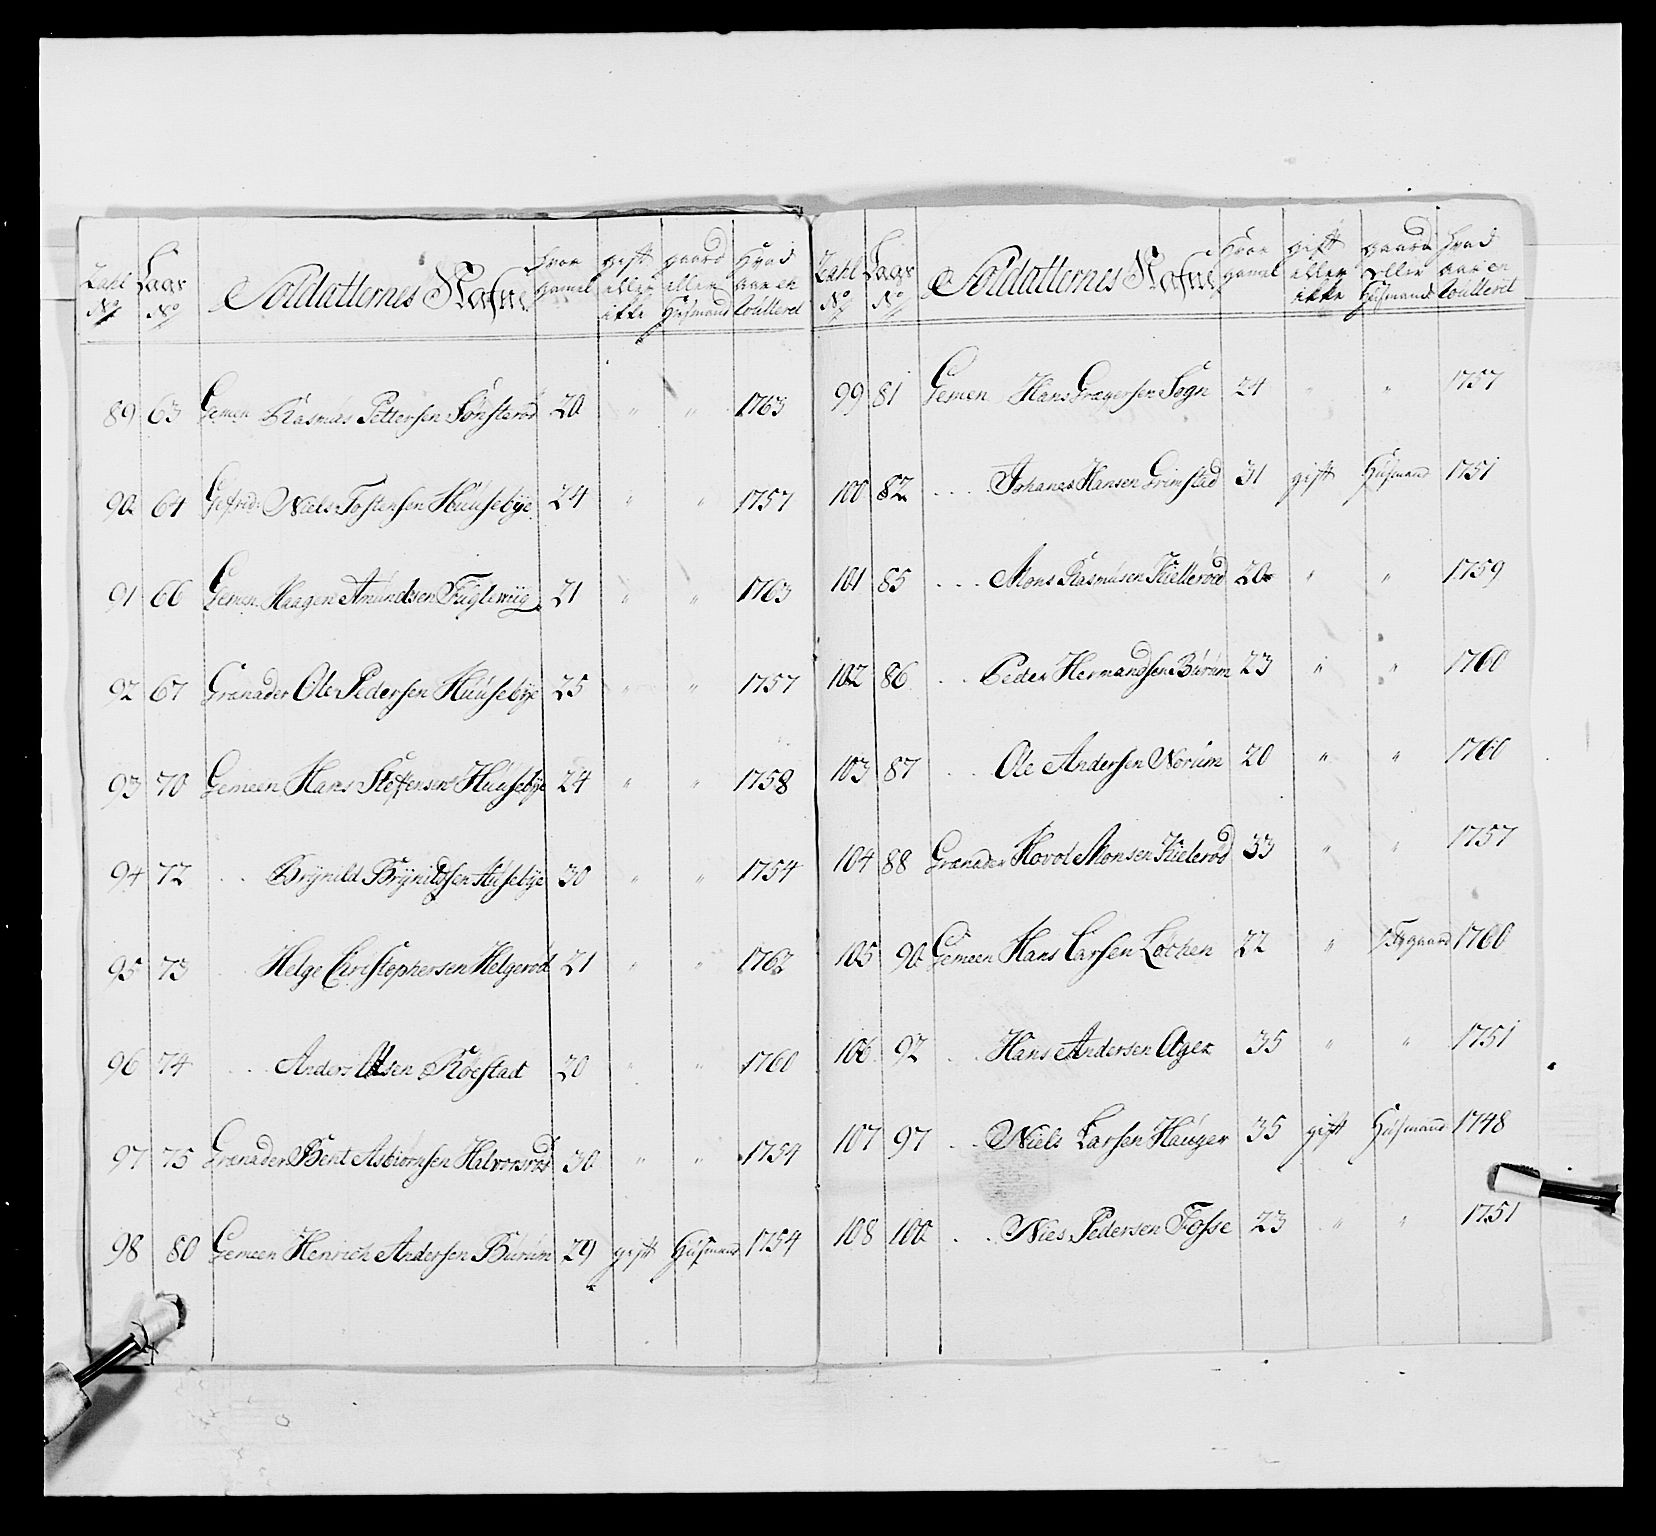 Zahl No | Lags No | Soldatternes Nafne | hvor gamel | gift eller ikke | gaard eller Huusmand | Hvad aar en Roulleret
89 | 63 | Gemen Rasmus Pettersen Sønsterød | 20 | " | " | 1763
90 | 64 | Gefrid: Niels Tostensen Huusebÿe | 24 | " | " | 1757
91 | 66 | Gemen Haagen Amundsen Fuglewiig | 21 | " | " | 1763
92 | 67 | Granader Ole Pedersen Huusebÿe | 25 | " | " | 1757
93 | 70 | Gemeen Hans Steffensen Huusebÿe | 24 | " | " | 1758
94 | 72 | . . Brÿnild Brÿnildsen Husebÿe | 30 | " | " | 1754
95 | 73 | . . Helge Christophersen Helgerød | 21 | " | " | 1762
96 | 74 | . . Anders Olsen Roestad | 20 | " | " | 1760
97 | 75 | Granader Bent Asbiørnsen Halvorsrød | 30 | " | " | 1754
98 | 80 | Gemeen Henrich Andersen Burum | 29 | gift | Huusmand | 1754
Zahl No | Lags No | Soldatternes Nafne | Hvor gamel | gift eller ikke | gaard eller Huusmand | hvad aar en Roulleret
99 | 81 | Gemen Hans Gragersen Sogn | 24 | " | " | 1757
100 | 82 | . . . . Johanes Hansen Grimstad | 31 | gift | Huusmand | 1751
101 | 85 | . . . . Mons Rasmusen Kiellerød | 20 | " | " | 1759
102 | 86 | . . Peder Hermandsen Burum | 23 | " | " | 1760
103 | 87 | . . . Ole Andersen Norum | 20 | " | " | 1760
104 | 88 | Granader Hovol Monsen Kielerød | 33 | " | " | 1757
105 | 90 | Gemeen Hans Larsen Løcken | 22 | " | gaard | 1760
106 | 92 | . . . Hans Andersen Ager | 35 | " | " | 1751
107 | 97 | . . . Niels Larsen Hauger | 35 | gift | Huusmand | 1748
108 | 100 | . . . Nies Pedersen Fosse | 23 | " | " | 1751